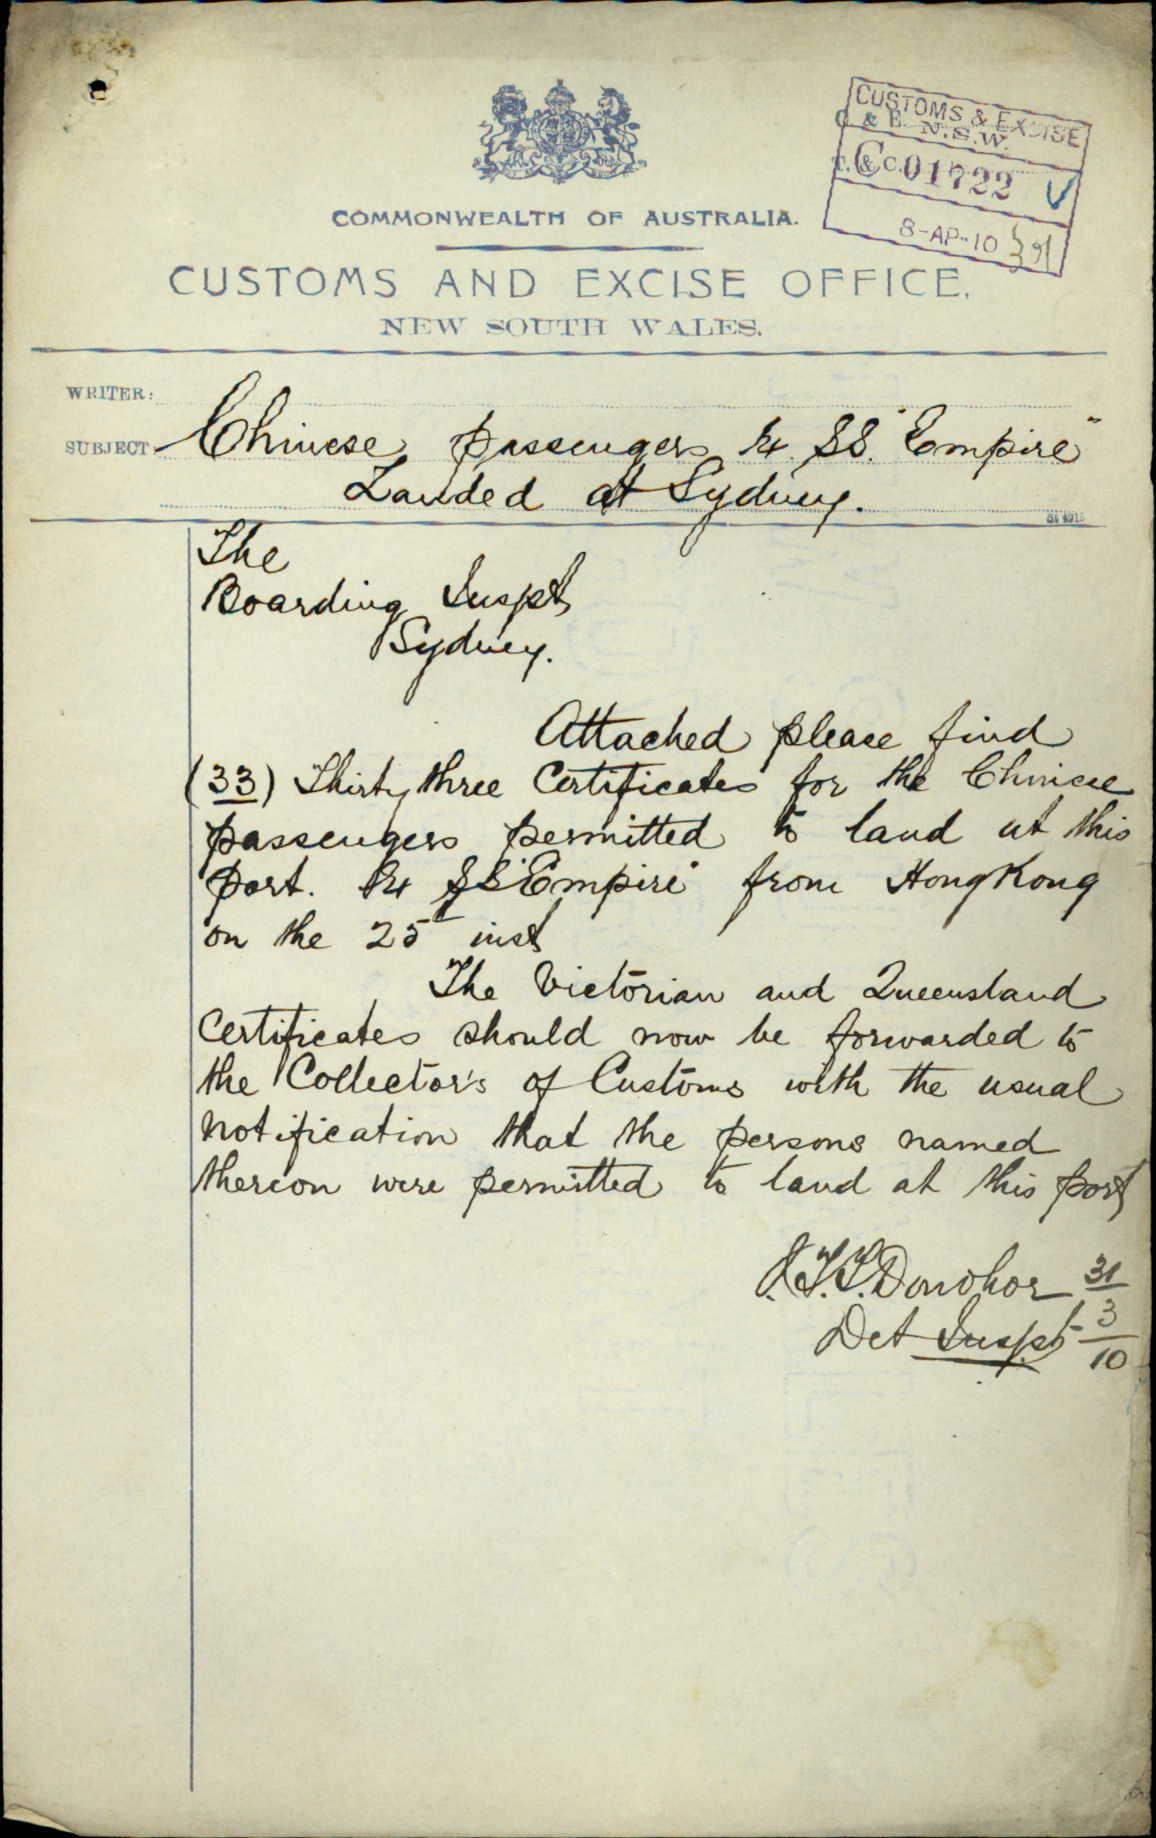 CUSTOMS & EXCISE
C. & E. N.S.W.
T. & C. C01722
8-AP-10
COMMONWEALTH OF AUSTRALIA.
CUSTOMS AND EXCISE OFFICE,
NEW SOUTH WALES.
WRITER:
SUBJECT: Chinese passengers ex. SS. "Empire"
Landed at Sydney.
St 4915
The
Boarding Inspt
Sydney.
Attached please find
(33) Thirty three Certificates for the Chinese
passengers permitted to land at this
port. ex SS "Empire" from Hong Kong
on the 25 inst
The Victorian and Queensland
Certificates should now be forwarded to
the Collector's of Customs with the usual
notification that the persons named
thereon were permitted to land at this port
J.T.T. Donohoe 31/3/10
Det Inspt